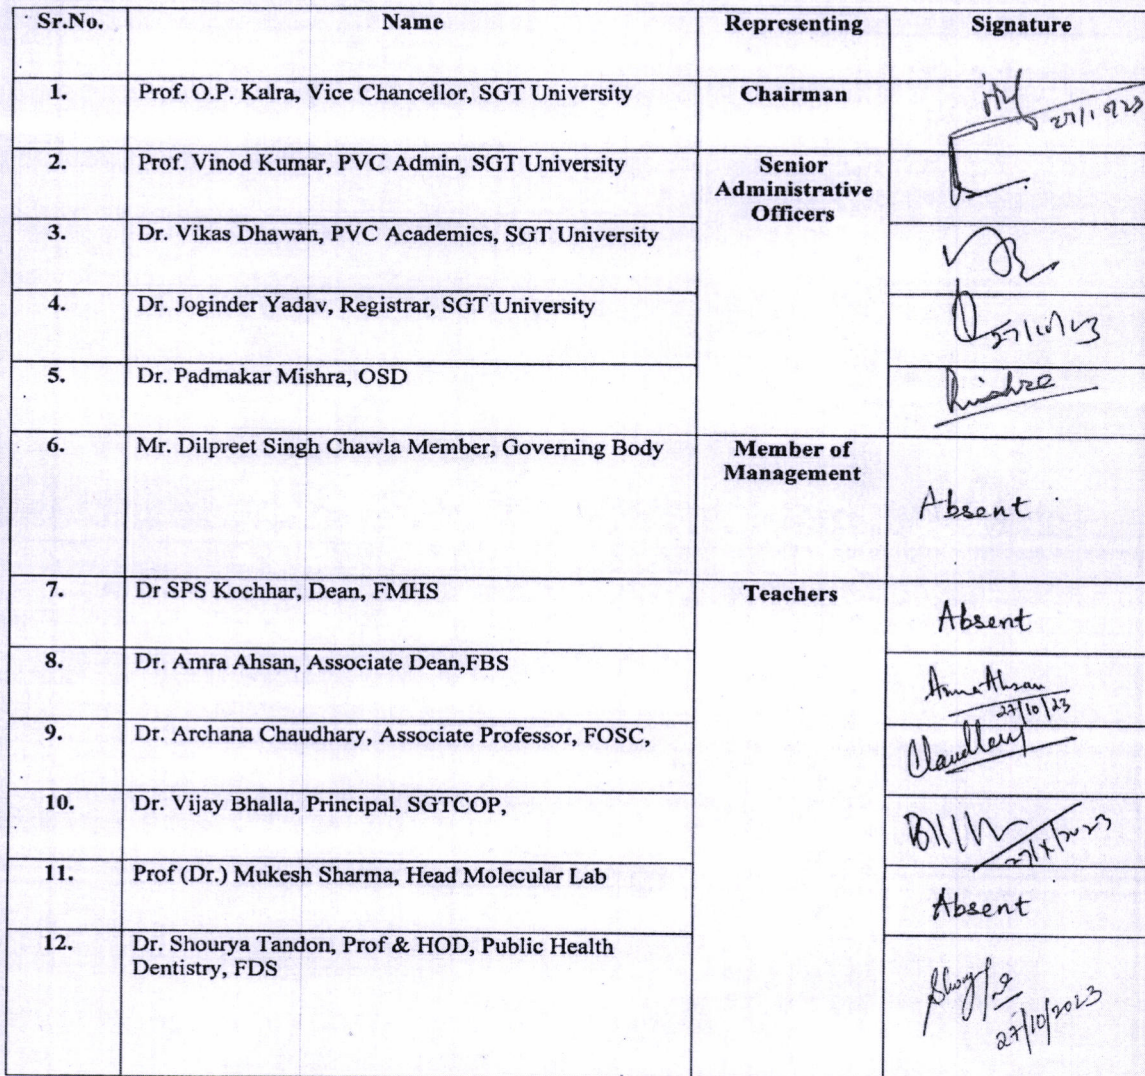 Sr.No. Name Representing Signature
1. Prof. O.P. Kalra, Vice Chancellor, SGT University Chairman
2. Prof. Vinod Kumar, PVC Admin, SGT University Senior
Administrative
Officers
3. Dr. Vikas Dhawan, PVC Academics, SGT University
4. Dr. Joginder Yadav, Registrar, SGT University
27/10/23
5. Dr. Padmakar Mishra, OSD
6. Mr. Dilpreet Singh Chawla Member, Governing Body Member of
Management
Absent
7. Dr SPS Kochhar, Dean, FMHS Teachers
Absent
8. Dr. Amra Ahsan, Associate Dean,FBS
Amra Ahsan
27/10/23
9. Dr. Archana Chaudhary, Associate Professor, FOSC,
10. Dr. Vijay Bhalla, Principal, SGTCOP,
27/X/2023
11. Prof (Dr.) Mukesh Sharma, Head Molecular Lab
Absent
12. Dr. Shourya Tandon, Prof & HOD, Public Health
Dentistry, FDS
27/10/2023